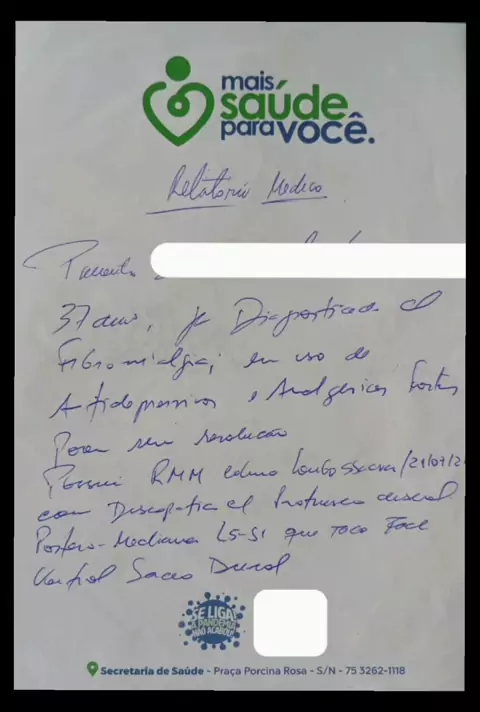 mais
saúde
para você.
Relatorio Medico
Paciente
37 anos, ja Diagnosticada c/
Fibromialgia, em uso de
Antidepressivos e Analgesicos Fortes
Porem sem resolução
Possui RMM coluna Lombossacra /21/07/2
com Discopatia c/ Protrusao discal
Postero-Mediana L5-S1 que Toca Face
Ventral Saco Dural
SE LIGA!
A PANDEMIA
NÃO ACABOU!
Secretaria de Saúde - Praça Porcina Rosa - S/N - 75 3262-1118